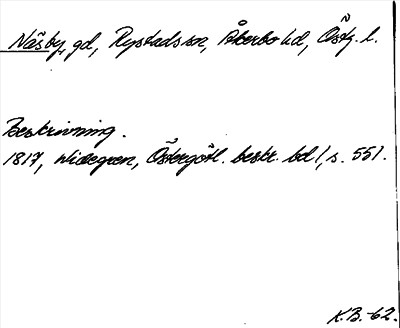 Näsby, gd, Rystads sn, Åkerbo hd, Östg. l.
Beskrivning.
1817, Widegren, Östergötl. beskr. bd I, s. 551.
K.B.-62.